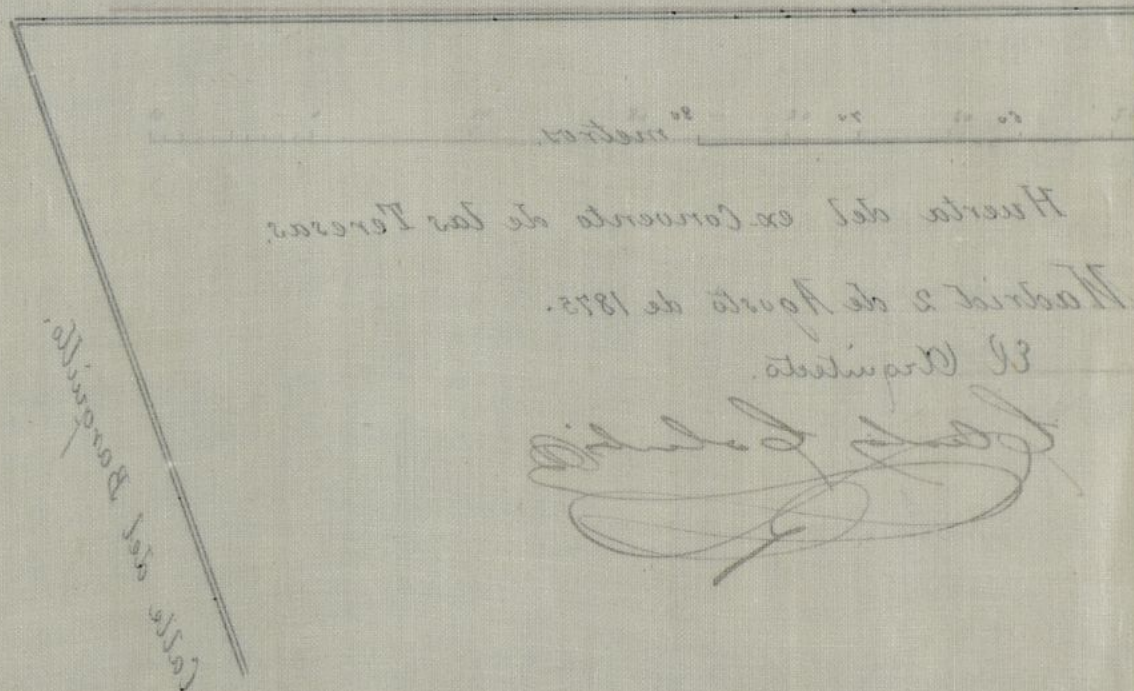 50 60 70 80 metros.
Huerta del ex-Convento de las Teresas.
Madrid 2 de Agosto de 1875.
El Arquitecto.
Calle del Barquillo.